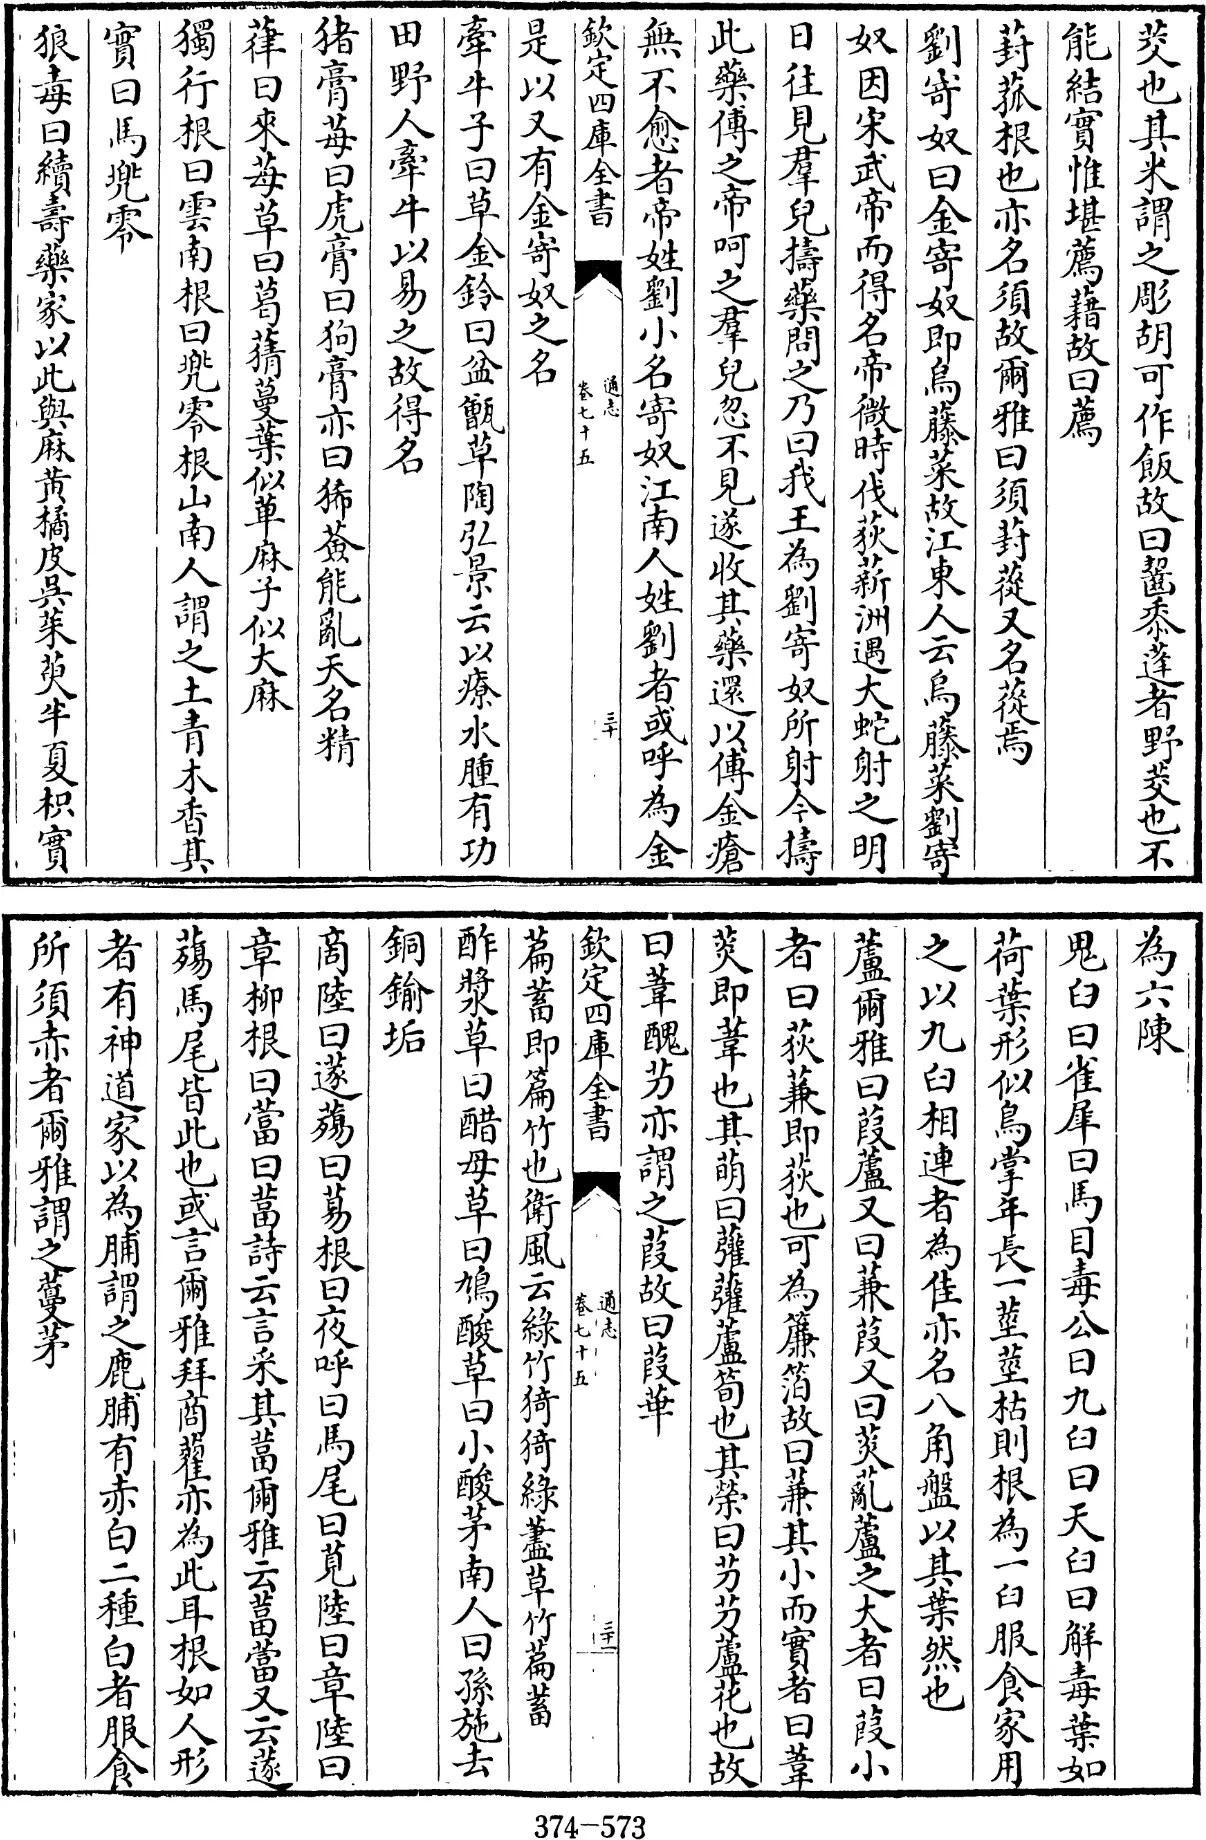 茭也其米謂之彫胡可作飯故曰齧黍蓬者野茭也不
能結實惟堪薦藉故曰薦
葑菰根也亦名須故爾雅曰須葑蓯又名蓯焉
劉寄奴曰金寄奴即烏藤菜故江東人云烏藤菜劉寄
奴因宋武帝而得名帝微時伐荻新洲遇大蛇射之明
日往見羣兒擣藥問之乃曰我王為劉寄奴所射今擣
此藥傅之帝呵之羣兒忽不見遂收其藥還以傅金瘡
無不愈者帝姓劉小名寄奴江南人姓劉者或呼為金
欽定四庫全書
通志
卷七十五
三十
是以又有金寄奴之名
牽牛子曰草金鈴曰盆甑草陶弘景云以療水腫有功
田野人牽牛以易之故得名
猪膏莓曰虎膏曰狗膏亦曰狶薟能亂天名精
葎曰來莓草曰葛葎蔓葉似萆麻子似大麻
獨行根曰雲南根曰兜零根山南人謂之土青木香其
實曰馬兜零
狼毒曰續壽藥家以此與麻黄橘皮吳茱萸半夏枳實
為六陳
鬼臼曰雀犀曰馬目毒公曰九臼曰天臼曰解毒葉如
荷葉形似鳥掌年長一莖莖枯則根為一臼服食家用
之以九臼相連者為佳亦名八角盤以其葉然也
蘆爾雅曰葭蘆又曰蒹葭又曰菼薍蘆之大者曰葭小
者曰荻蒹即荻也可為簾箔故曰蒹其小而實者曰葦
菼即葦也其萌曰虇虇蘆筍也其榮曰芀芀蘆花也故
曰葦醜芀亦謂之葭故曰葭華
欽定四庫全書
通志
卷七十五
三十一
萹蓄即篇竹也衛風云綠竹猗猗綠藎草竹萹蓄
酢漿草曰醋母草曰鳩酸草曰小酸茅南人曰孫施去
銅鍮垢
商陸曰蓫薚曰募根曰夜呼曰馬尾曰莧陸曰章陸曰
章柳根曰當曰葍詩云言采其葍爾雅云葍蕾又云蓫
薚馬尾皆此也或言爾雅拜商藋亦為此耳根如人形
者有神道家以為脯謂之鹿脯有赤白二種白者服食
所須赤者爾雅謂之藑茅
374-573